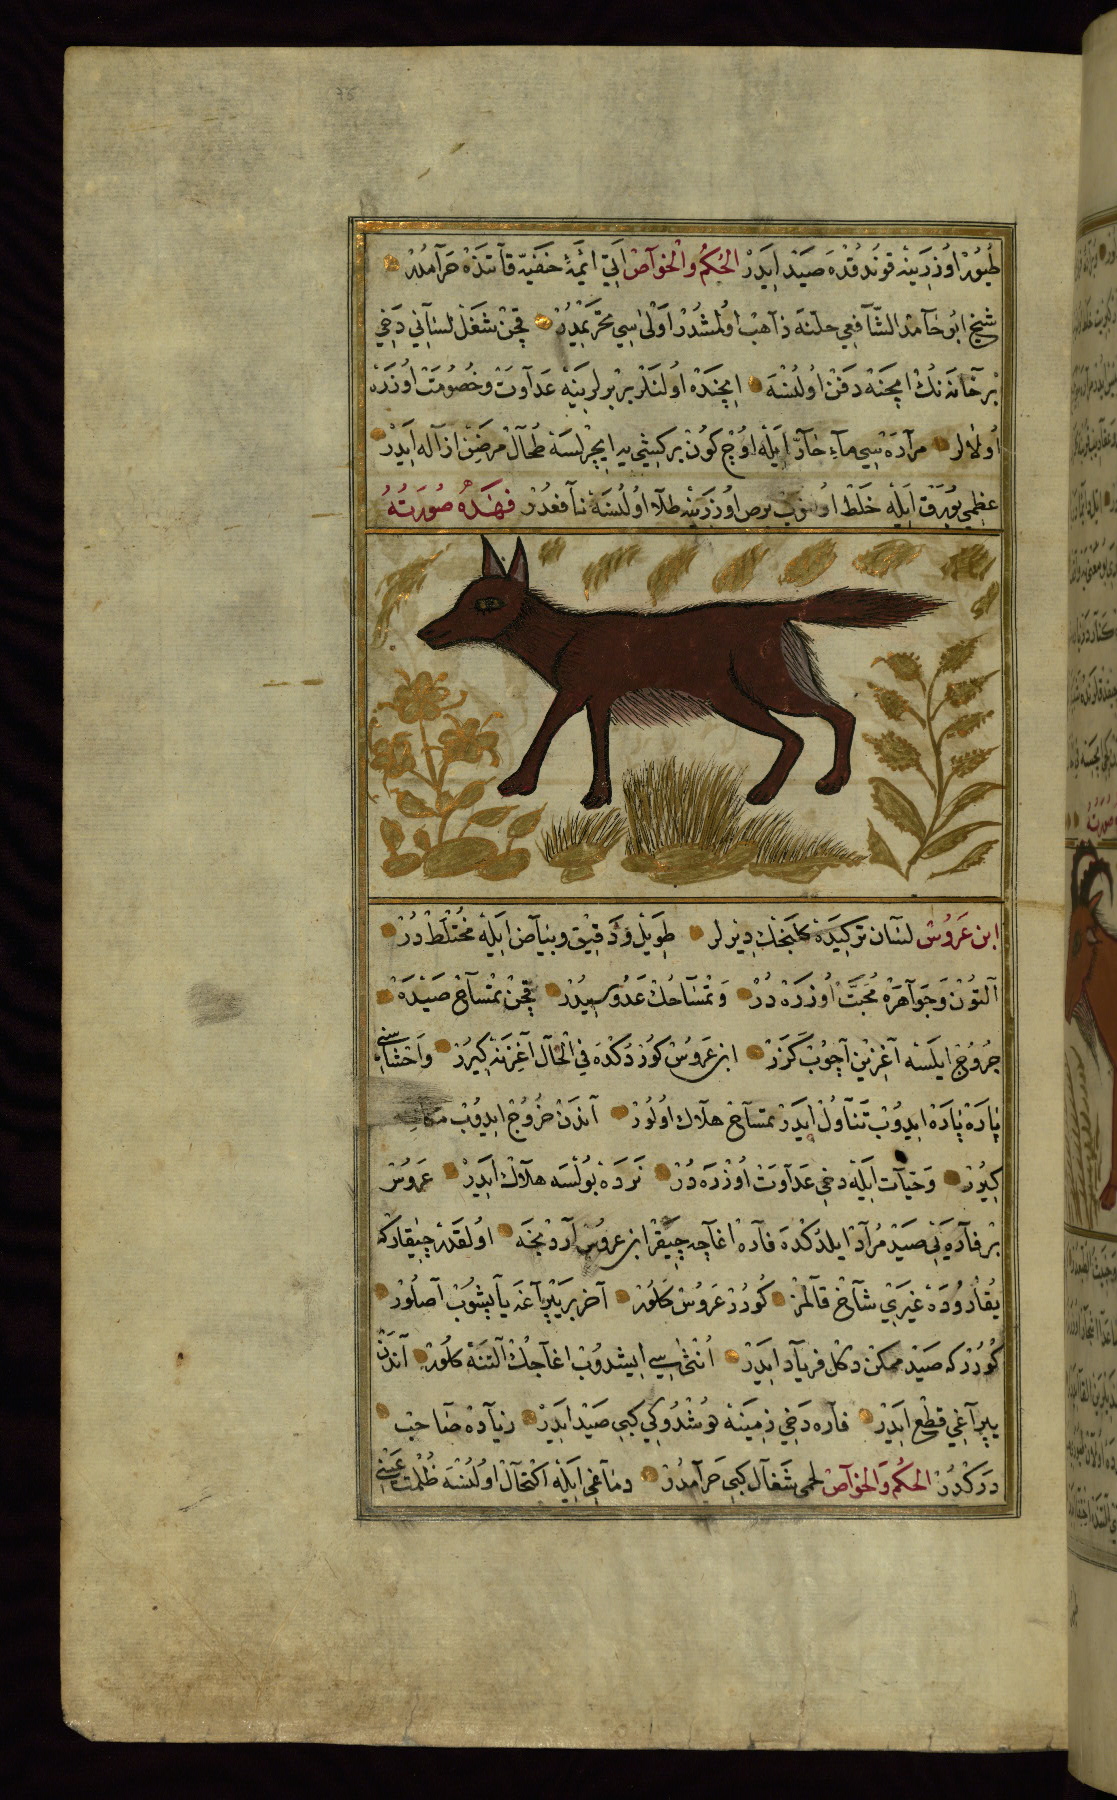 طيور اوزرينه قوندقده صيد ايدر الحكم والخواص اتى ائمهٔ حنفيه قاتنده حرامدر
شيخ ابو حامد الشافعى حلنه ذاهب اولمشدر اولى سى محرمدر قچن شغل لسانى دخى
بر خانه نك ايچنه دفن اولنسه ايچنده اولنلر بربرلرينه عداوت وخصومت اوزره
اولالر مراره سى ماء حار ايله اوچ كون بر كيشى يه ايچرلسه طحال مرضين ازاله ايدر
عظمى بورق ايله خلط اولنوب برص اوزرينه طلا اولنسه نافعدر فهذه صورته
ابن عروس لسان تركيده كلنجك ديرلر طويل ودقيق وبياض ايله مختلط در
آلتون وجواهره محبت اوزره در وتمساحك عدوسيدر قچن تمساح صيده
خروج ايلسه آغزين آچوب كزر ابن عروس كوردكده فى الحال آغزنه كيرر واحشاسنى
پاره پاره ايدوب تناول ايدر تمساح هلاك اولور آندن خروج ايدوب
كيرر وحيات ايله دخى عداوت اوزره در نرده بولسه هلاك ايدر عروس
بر فاره يى صيد مراد ايلدكده فاره اغاجه چيقر ابن عروس آردنجه اولقدر چيقاركه
بوداده غيرى شاخ قالمز كورر عروس كلور آخر بر يپراغه ياپشوب آصلور
كوررکه صيد ممكن دكل فرياد ايدر انثى سى ايشدوب اغاجك آلتنه كلور آندن
يپراغى قطع ايدر فاره دخى زمينه دوشدوكى كبى صيد ايدر زياده صاحب
دركدر الحكم والخواص لحمى شغال كبى حرامدر دماغى ايله اكتحال اولنسه ظلمت عينى